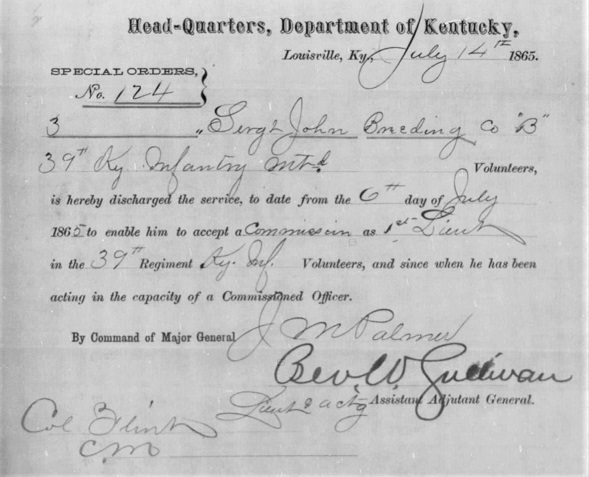 Head-Quarters, Department of Kentucky,
Louisville, Ky., July 14th 1865.
SPECIAL ORDERS,
No. 124
3 " Sergt John Breeding Co "B"
39th Ky. Infantry Mtd Volunteers,
is hereby discharged the service, to date from the 6th day of July
1865 to enable him to accept a Commission as 1st Lieut
in the 39th Regiment Ky. Inf. Volunteers, and since when he has been
acting in the capacity of a Commissioned Officer.
By Command of Major General J M Palmer
W.
Lieut & actg Assistant Adjutant General.
Col
C M